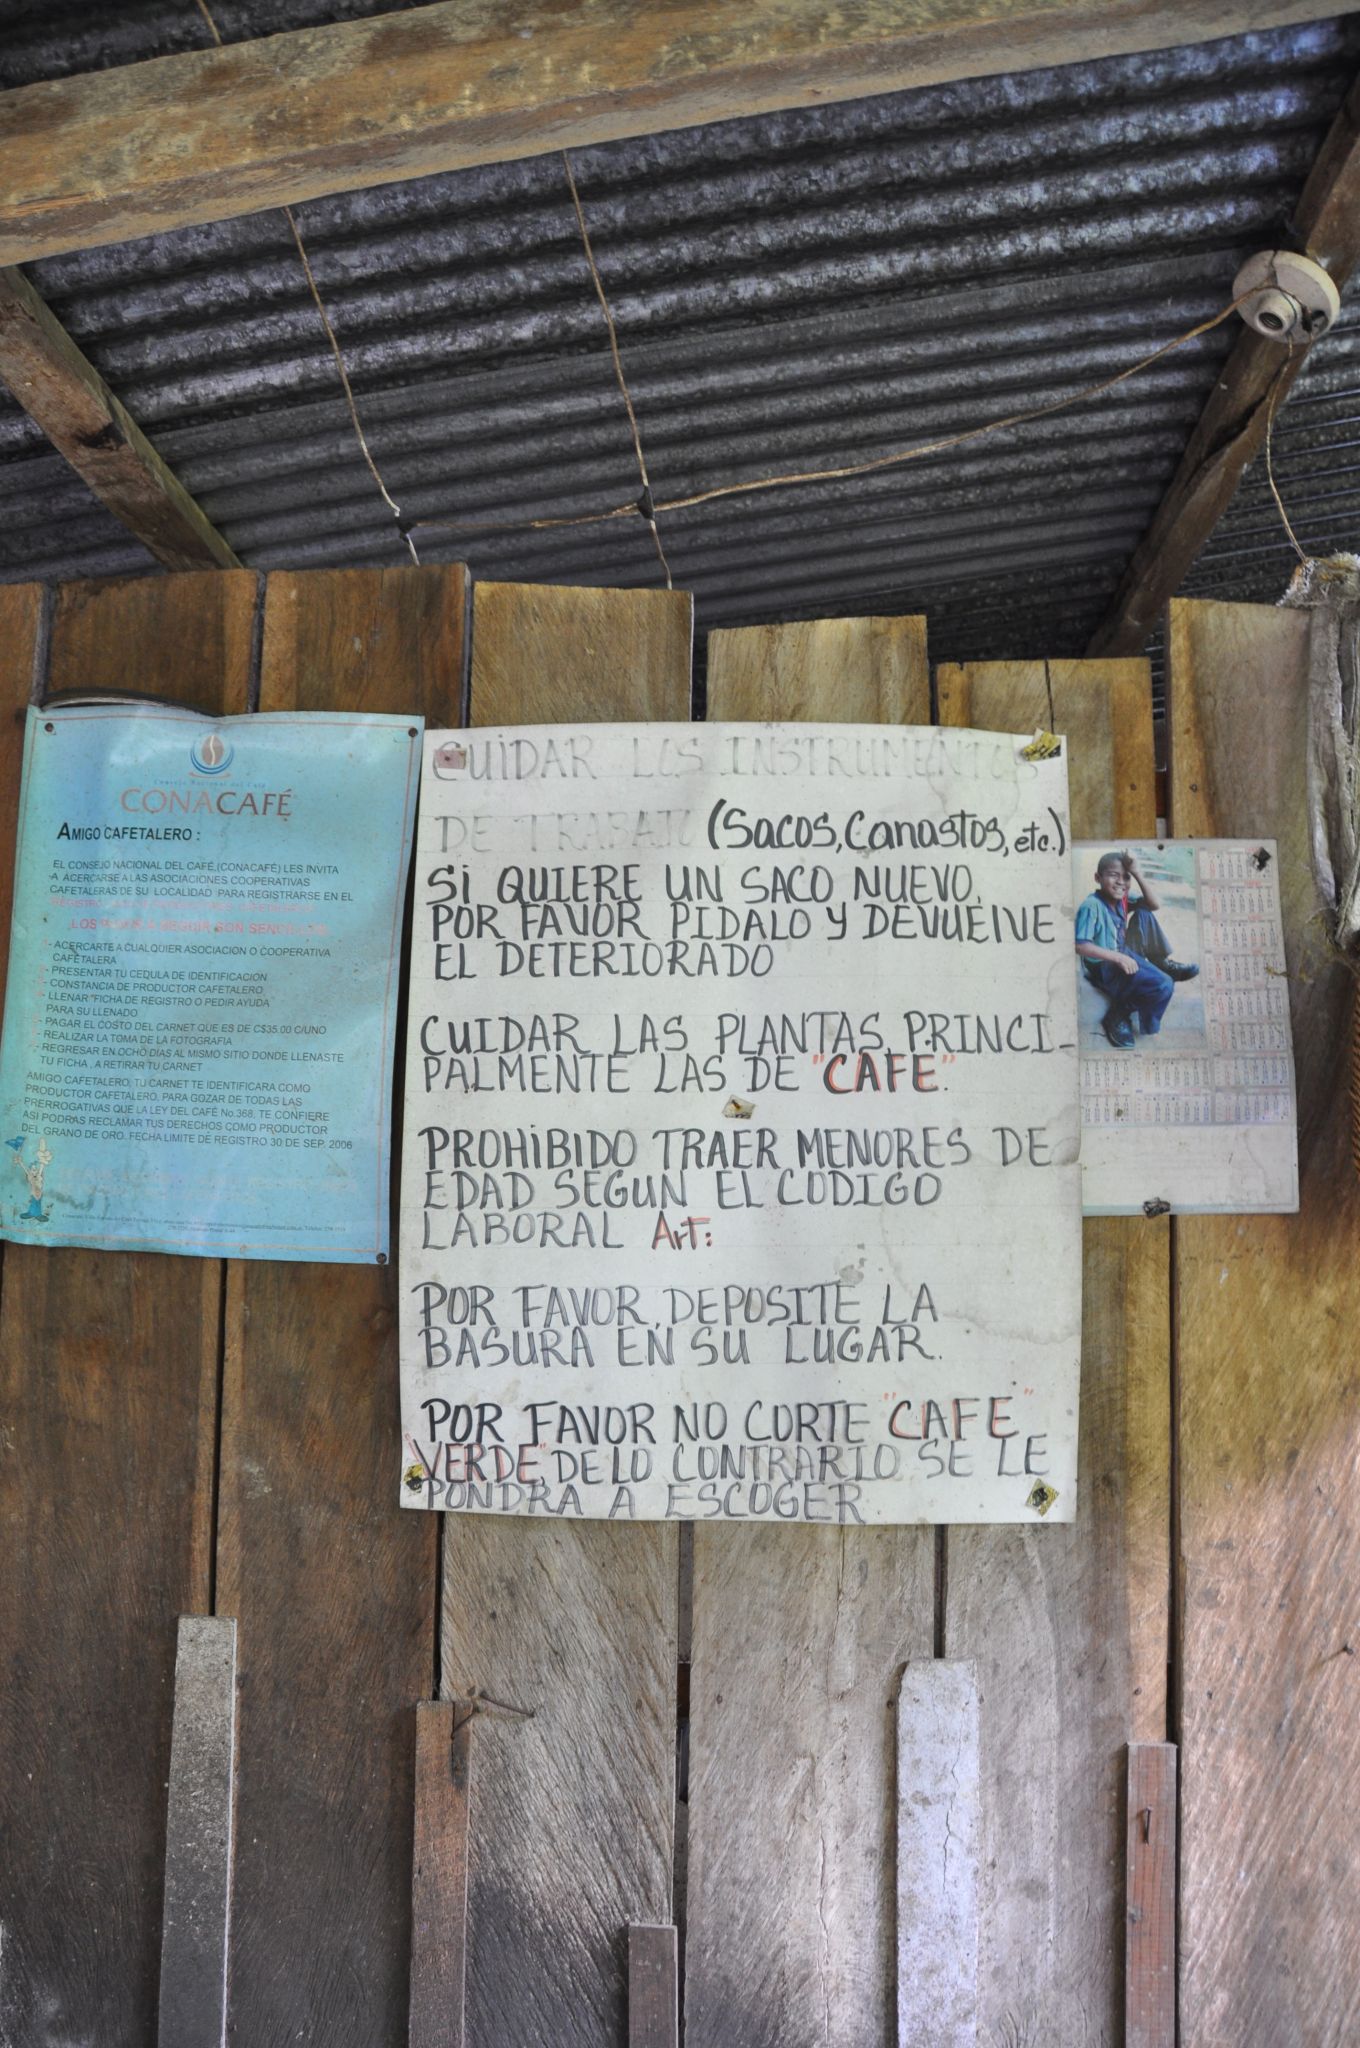 CONACAFÉ
AMIGO CAFETALERO :
EL CONSEJO NACIONAL DEL CAFÉ,(CONACAFÉ) LES INVITA
A ACERCARSE A LAS ASOCIACIONES COOPERATIVAS
CAFETALERAS DE SU LOCALIDAD PARA REGISTRARSE EN EL
REGISTRO
LOS PASOS A SEGUIR SON SENCILLOS
- ACERCARTE A CUALQUIER ASOCIACION O COOPERATIVA
CAFETALERA
- PRESENTAR TU CEDULA DE IDENTIFICACION
- CONSTANCIA DE PRODUCTOR CAFETALERO
- LLENAR "FICHA DE REGISTRO O PEDIR AYUDA
PARA SU LLENADO
- PAGAR EL COSTO DEL CARNET QUE ES DE C$35.00 C/UNO
- REALIZAR LA TOMA DE LA FOTOGRAFIA
- REGRESAR EN OCHO DIAS AL MISMO SITIO DONDE LLENASTE
TU FICHA , A RETIRAR TU CARNET
AMIGO CAFETALERO, TU CARNET TE IDENTIFICARA COMO
PRODUCTOR CAFETALERO, PARA GOZAR DE TODAS LAS
PRERROGATIVAS QUE LA LEY DEL CAFÉ No.368, TE CONFIERE
ASI PODRAS RECLAMAR TUS DERECHOS COMO PRODUCTOR
DEL GRANO DE ORO. FECHA LIMITE DE REGISTRO 30 DE SEP. 2006
CUIDAR LOS INSTRUMENTOS
DE TRABAJO (Sacos, Canastos, etc.)
Si QUIERE UN SACO NUEVO,
POR FAVOR PIDALO Y DEVUELVE
EL DETERIORADO
CUIDAR LAS PLANTAS, PRINCI-
PALMENTE LAS DE "CAFE".
PROHiBIDO TRAER MENORES DE
EDAD SEGUN EL CODIGO
LABORAL Art:
POR FAVOR, DEPOSITE LA
BASURA EN SU LUGAR.
POR FAVOR NO CORTE "CAFE"
"VERDE", DE LO CONTRARIO SE LE
PONDRA A ESCOGER